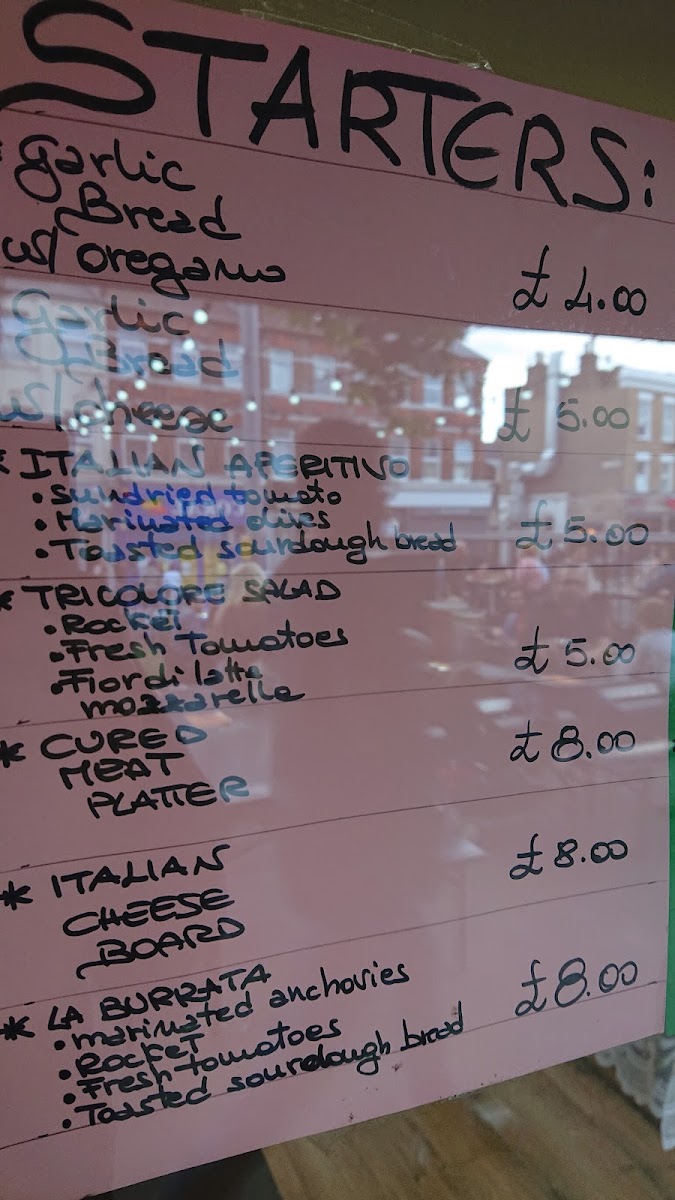 STARTERS:
* Garlic
Bread
w/ oregano £4.00
Garlic
Bread
w/ cheese £5.00
* ITALIAN APERITIVO
• Sundried tomato
• Marinated olives
• Toasted sourdough bread £5.00
* TRICOLORE SALAD
• Rocket
• Fresh Tomatoes
• Fior di latte
mozzarella £5.00
* CURED
MEAT
PLATTER £8.00
* ITALIAN
CHEESE
BOARD £8.00
* LA BURRATA
• marinated anchovies
• Rocket
• Fresh tomatoes
• Toasted sourdough bread £8.00